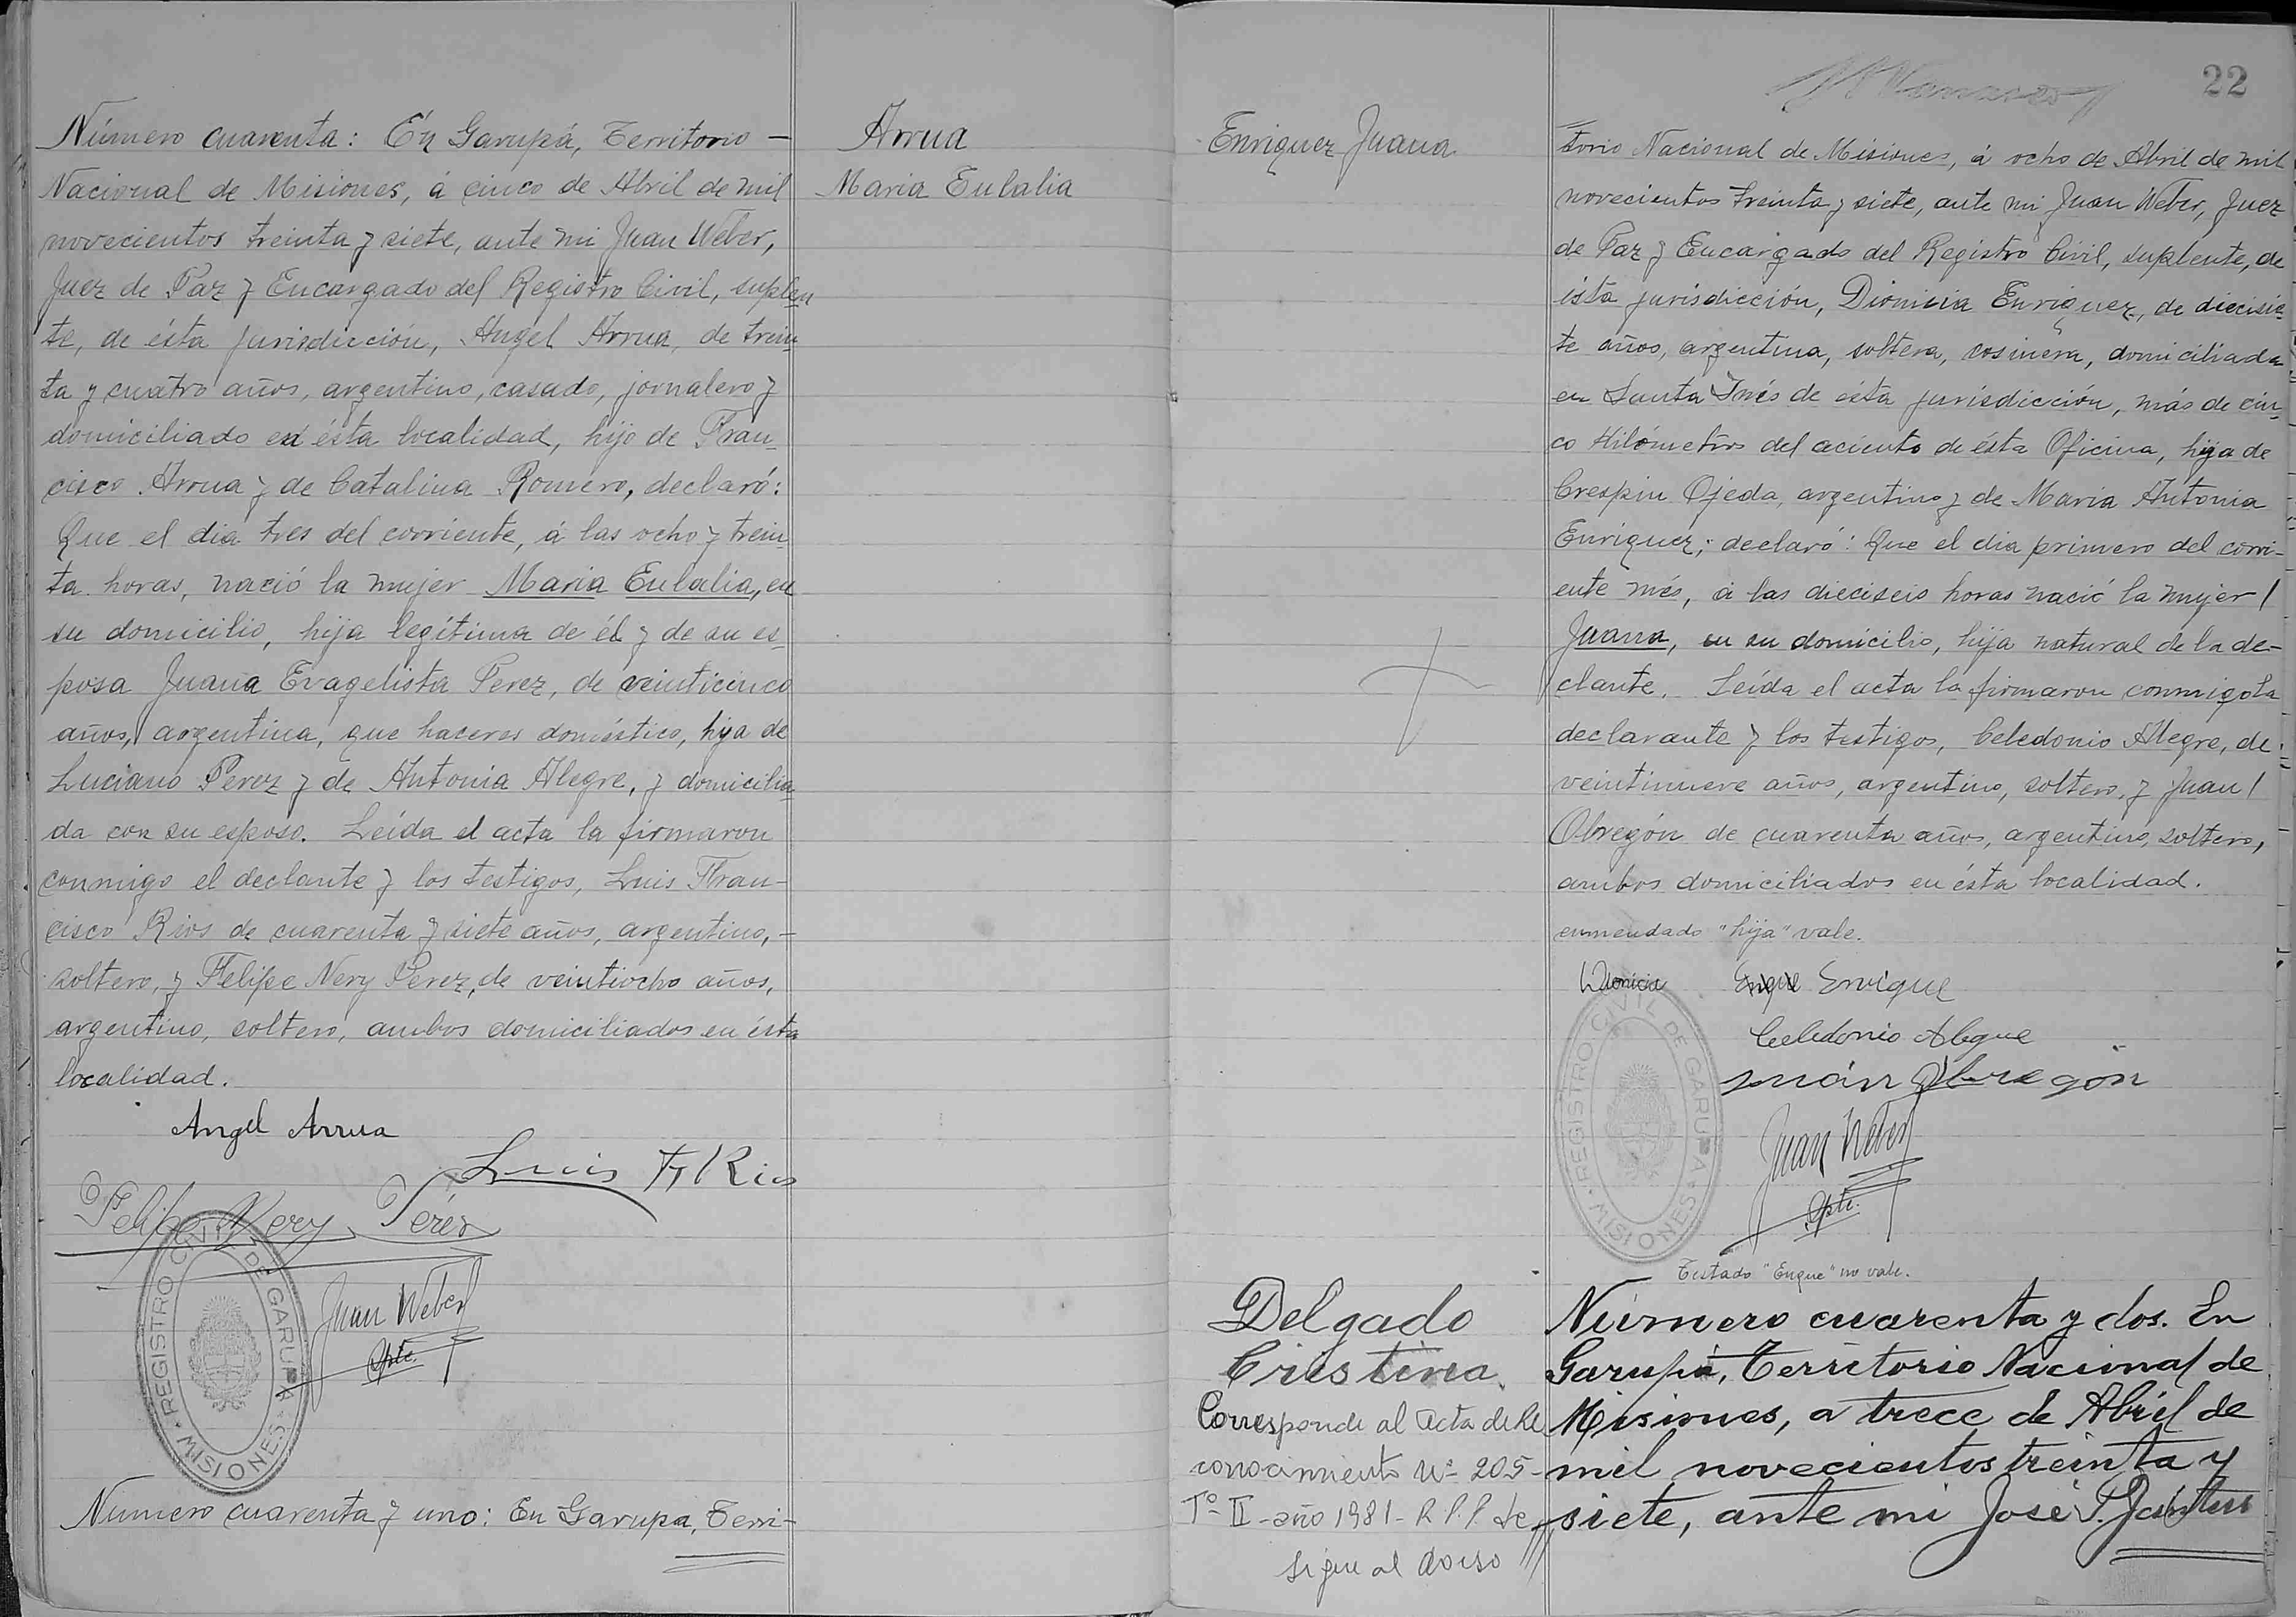 Número cuarenta: En Garupá, Territorio —
Nacional de Misiones, á cinco de Abril de mil
novecientos treinta y siete, ante mi Juan Weber,
Juez de Paz y Encargado del Registro Civil, suplen
te, de ésta jurisdicción, Angel Arrua, de trein
ta y cuatro años, argentino, casado, jornalero y
domiciliado en ésta localidad, hijo de Fran-
cisco Arrua y de Catalina Romero, declaró:
Que el dia tres del corriente, á las ocho y trein
ta horas, nació la mujer Maria Eulalia, en
su domicilio, hija legítima de él y de su es-
posa Juana Evagelista Perez, de veinticinco
años, argentina, que haceres doméstico, hija de
Luciano Perez y de Antonia Alegre, y domicilia
da con su esposo. Leída el acta la firmaron
conmigo el declante y los testigos, Luis Fran-
cisco Rios de cuarenta y siete años, argentino, —
soltero, y Felipe Nery Perez, de veintiocho años,
argentino, soltero, ambos domiciliados en ésta
localidad.
Angel Arrua
Luis F. Rios
Felipe Nery Pérez
Juan Weber
Spte.
REGISTRO CIVIL DE GARUPA
MISIONES
Numero cuarenta y uno: En Garupa, Terri-
Arrua
Maria Eulalia
Enriquez Juana
22
torio Nacional de Misiones, á ocho de Abril de mil
novecientos treinta y siete, ante mi Juan Weber, Juez
de Paz y Encargado del Registro Civil, suplente, de
ésta jurisdicción, Dionisia Enriquez, de diecisie
te años, argentina, soltera, cosinera, domiciliada
en Santa Inés de ésta jurisdicción, más de cin
co Kilómetros del aciento de ésta Oficina, hija de
Crespin Ojeda, argentino y de Maria Antonia
Enriquez; declaró: Que el dia primero del corri-
ente més, á las dieciseis horas nació la mujer /
Juana, en su domicilio, hija natural de la de-
clante. Leída el acta la firmaron conmigo la
declarante y los testigos, Celedonio Alegre, de
veintinueve años, argentino, soltero, y Juan /
Obregón de cuarenta años, argentino, soltero,
ambos domiciliados en ésta localidad.
enmendado "hija" vale.
Dionicia Enque Enrique
Celedonio Alegre
Juán Obregón
Juan Weber
Spte.
REGISTRO CIVIL DE GARUPA
MISIONES
Testado "Enque" no vale.
Delgado
Cristina
Corresponde al acta de Re
conocimiento Nº 205-
Tº II - año 1981 - R.P.P. de
sigue al dorso
Número cuarenta y dos. En
Garupá, Territorio Nacional de
Misiones, a trece de Abril de
mil novecientos treinta y
siete, ante mi José P.